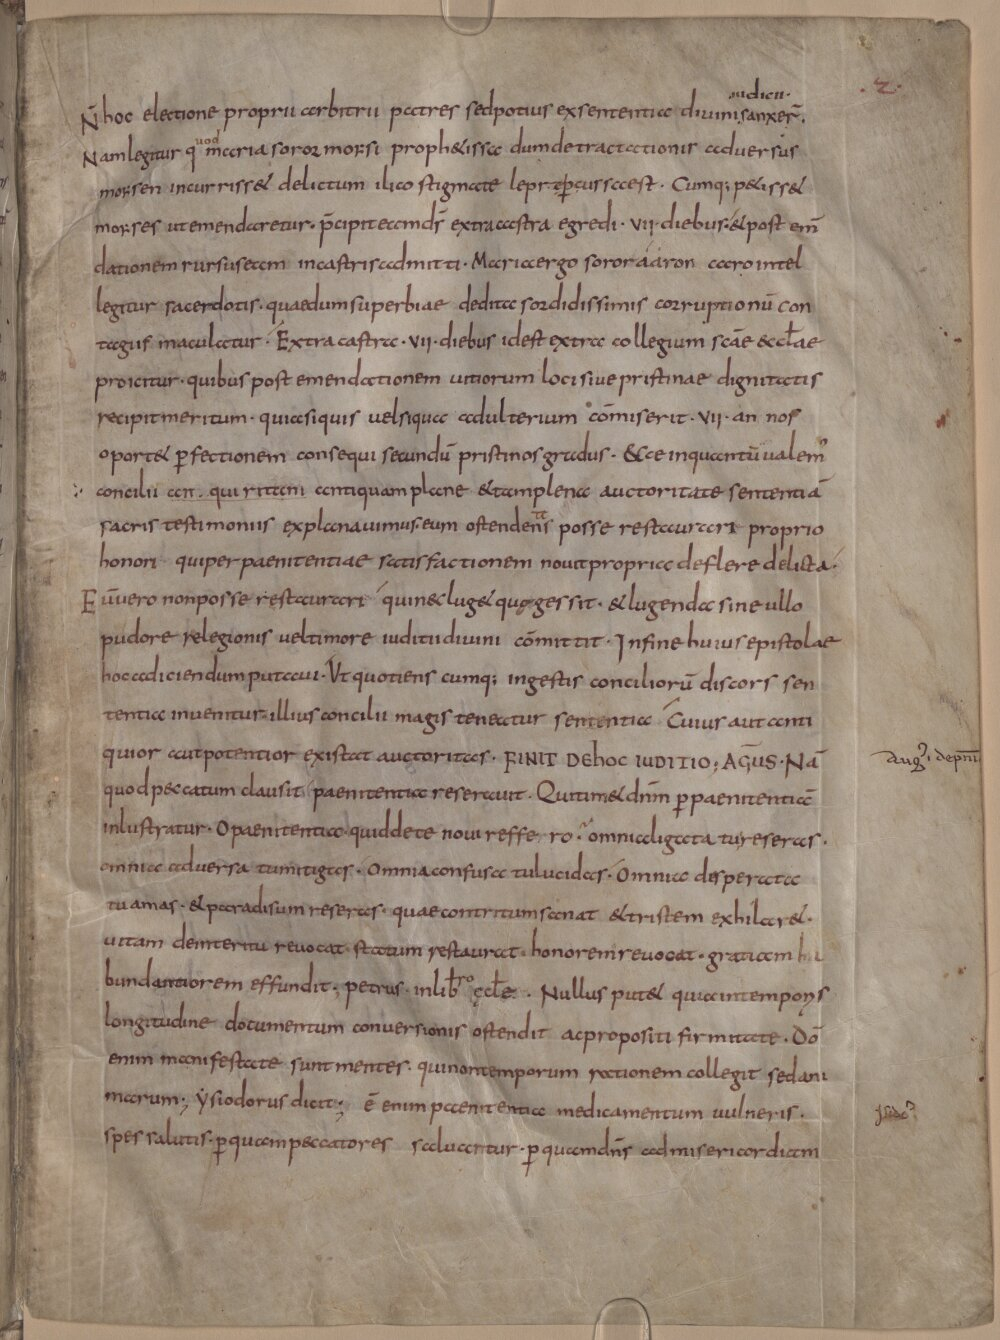 ·2·
iudicii·
N̄ hoc electione proprii arbitrii patres sed potius ex sententia divini sanxer̄.
Nam legitur quod maria soror morsi prophetissa dum detractationis adversus
morsen incurrisset delictum ilico stigmate lepre percussa est · Cumq; petisset
morses ut emendaretur · p̄cipiteam dn̄s extra castra egredi · VII · diebus · et post em̄
dationem rursus eam in castris admitti · Maria ergo soror aaron caro intel
legitur sacerdotis · quaedum superbiae dedita sordidissimis corruptionū con
tagiis maculatur · Extra castra · VII · diebus id est extra collegium scāe eccl̄ae
proicitur · quibus post emendationem vitiorum loci sive pristinae dignitatis
recipit meritum · quia siquis vel siqua adulterium cōmiserit · VII · an nos
oportet perfectionem consequi secundū pristinos gradus · Ecce in quantū valem̄
concilii an quiritani antiquam plane et amplena auctoritate sententiā
sacris testimoniis explanavimus · eum ostendens posse restaurari proprio
honori qui per paenitentiae satisfactionem novit propria deflere delicta ·
Eū vero non posse restaurari qui nec luget quę gessit · et lugenda sine ullo
pudore relegionis vel timore iuditii divini cōmittit · In fine huius epistolae
hoc adiciendum putavi · Ut quotiens cumq; in gestis conciliorū discors sen
tentia invenitur · illius concilii magis teneatur sententia Cuius aut anti
quior aut potentior existat auctoritas · FINIT DE hoc IUDITIO; AGUS · Nā
aug̕ · de penit̄
quod peccatum clausit paenitentia reseravit · Qui timet dnm̄ per paenitentiā
inlustratur · O paenitentia · quid de te novi reffero · omnia ligata tu reseras ·
omnia adversa tu mitigas · Omnia confusa tu lucidas · Omnia desperata
tu amas · et paradisum reseras · quae contritum sanat et tristem exhilaret ·
vitam de interitu revocat · statum restaurat · honorem revocat · gratiam
bundantiorem effundit · petrus · in lib̄ro eccl̄e · Nullus putet quia in temporis
longitudine documentum conversionis ostendit ac propositi firmitate · Dō
enim manifestate sunt mentes · qui non temporum rationem collegit sed ani
marum; Ysiodorus dicit; ē enim paenitentia medicamentum vulneris ·
Isidō
spes salutis · per quam peccatores salvantur · per quam dn̄s ad misericordiam